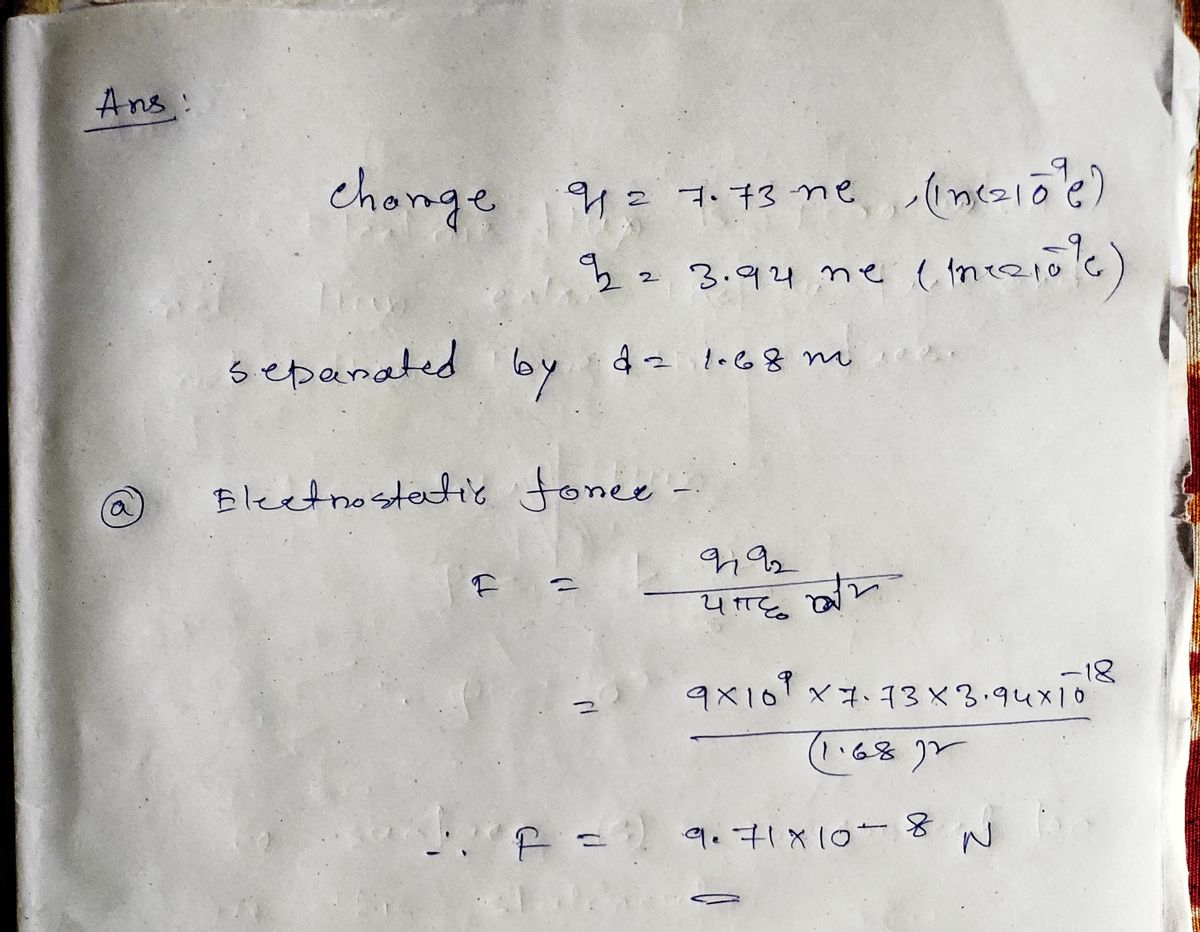 Ans:
charge q₁ = 7.73 nc, (1nc=10⁻⁹c)
q₂ = 3.94 nc (1nc=10⁻⁹c)
separated by d = 1.68 m
ⓐ Electrostatic force -
F = q₁q₂ / 4πε₀ d²
= 9×10⁹ × 7.73 × 3.94×10⁻¹⁸ / (1.68)²
∴ F = 9.71×10⁻⁸ N